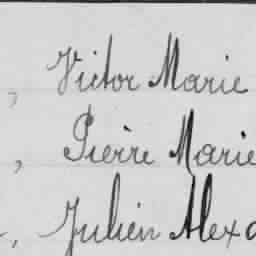 , Victor Marie
, Pierre Marie
, Julien Alexa